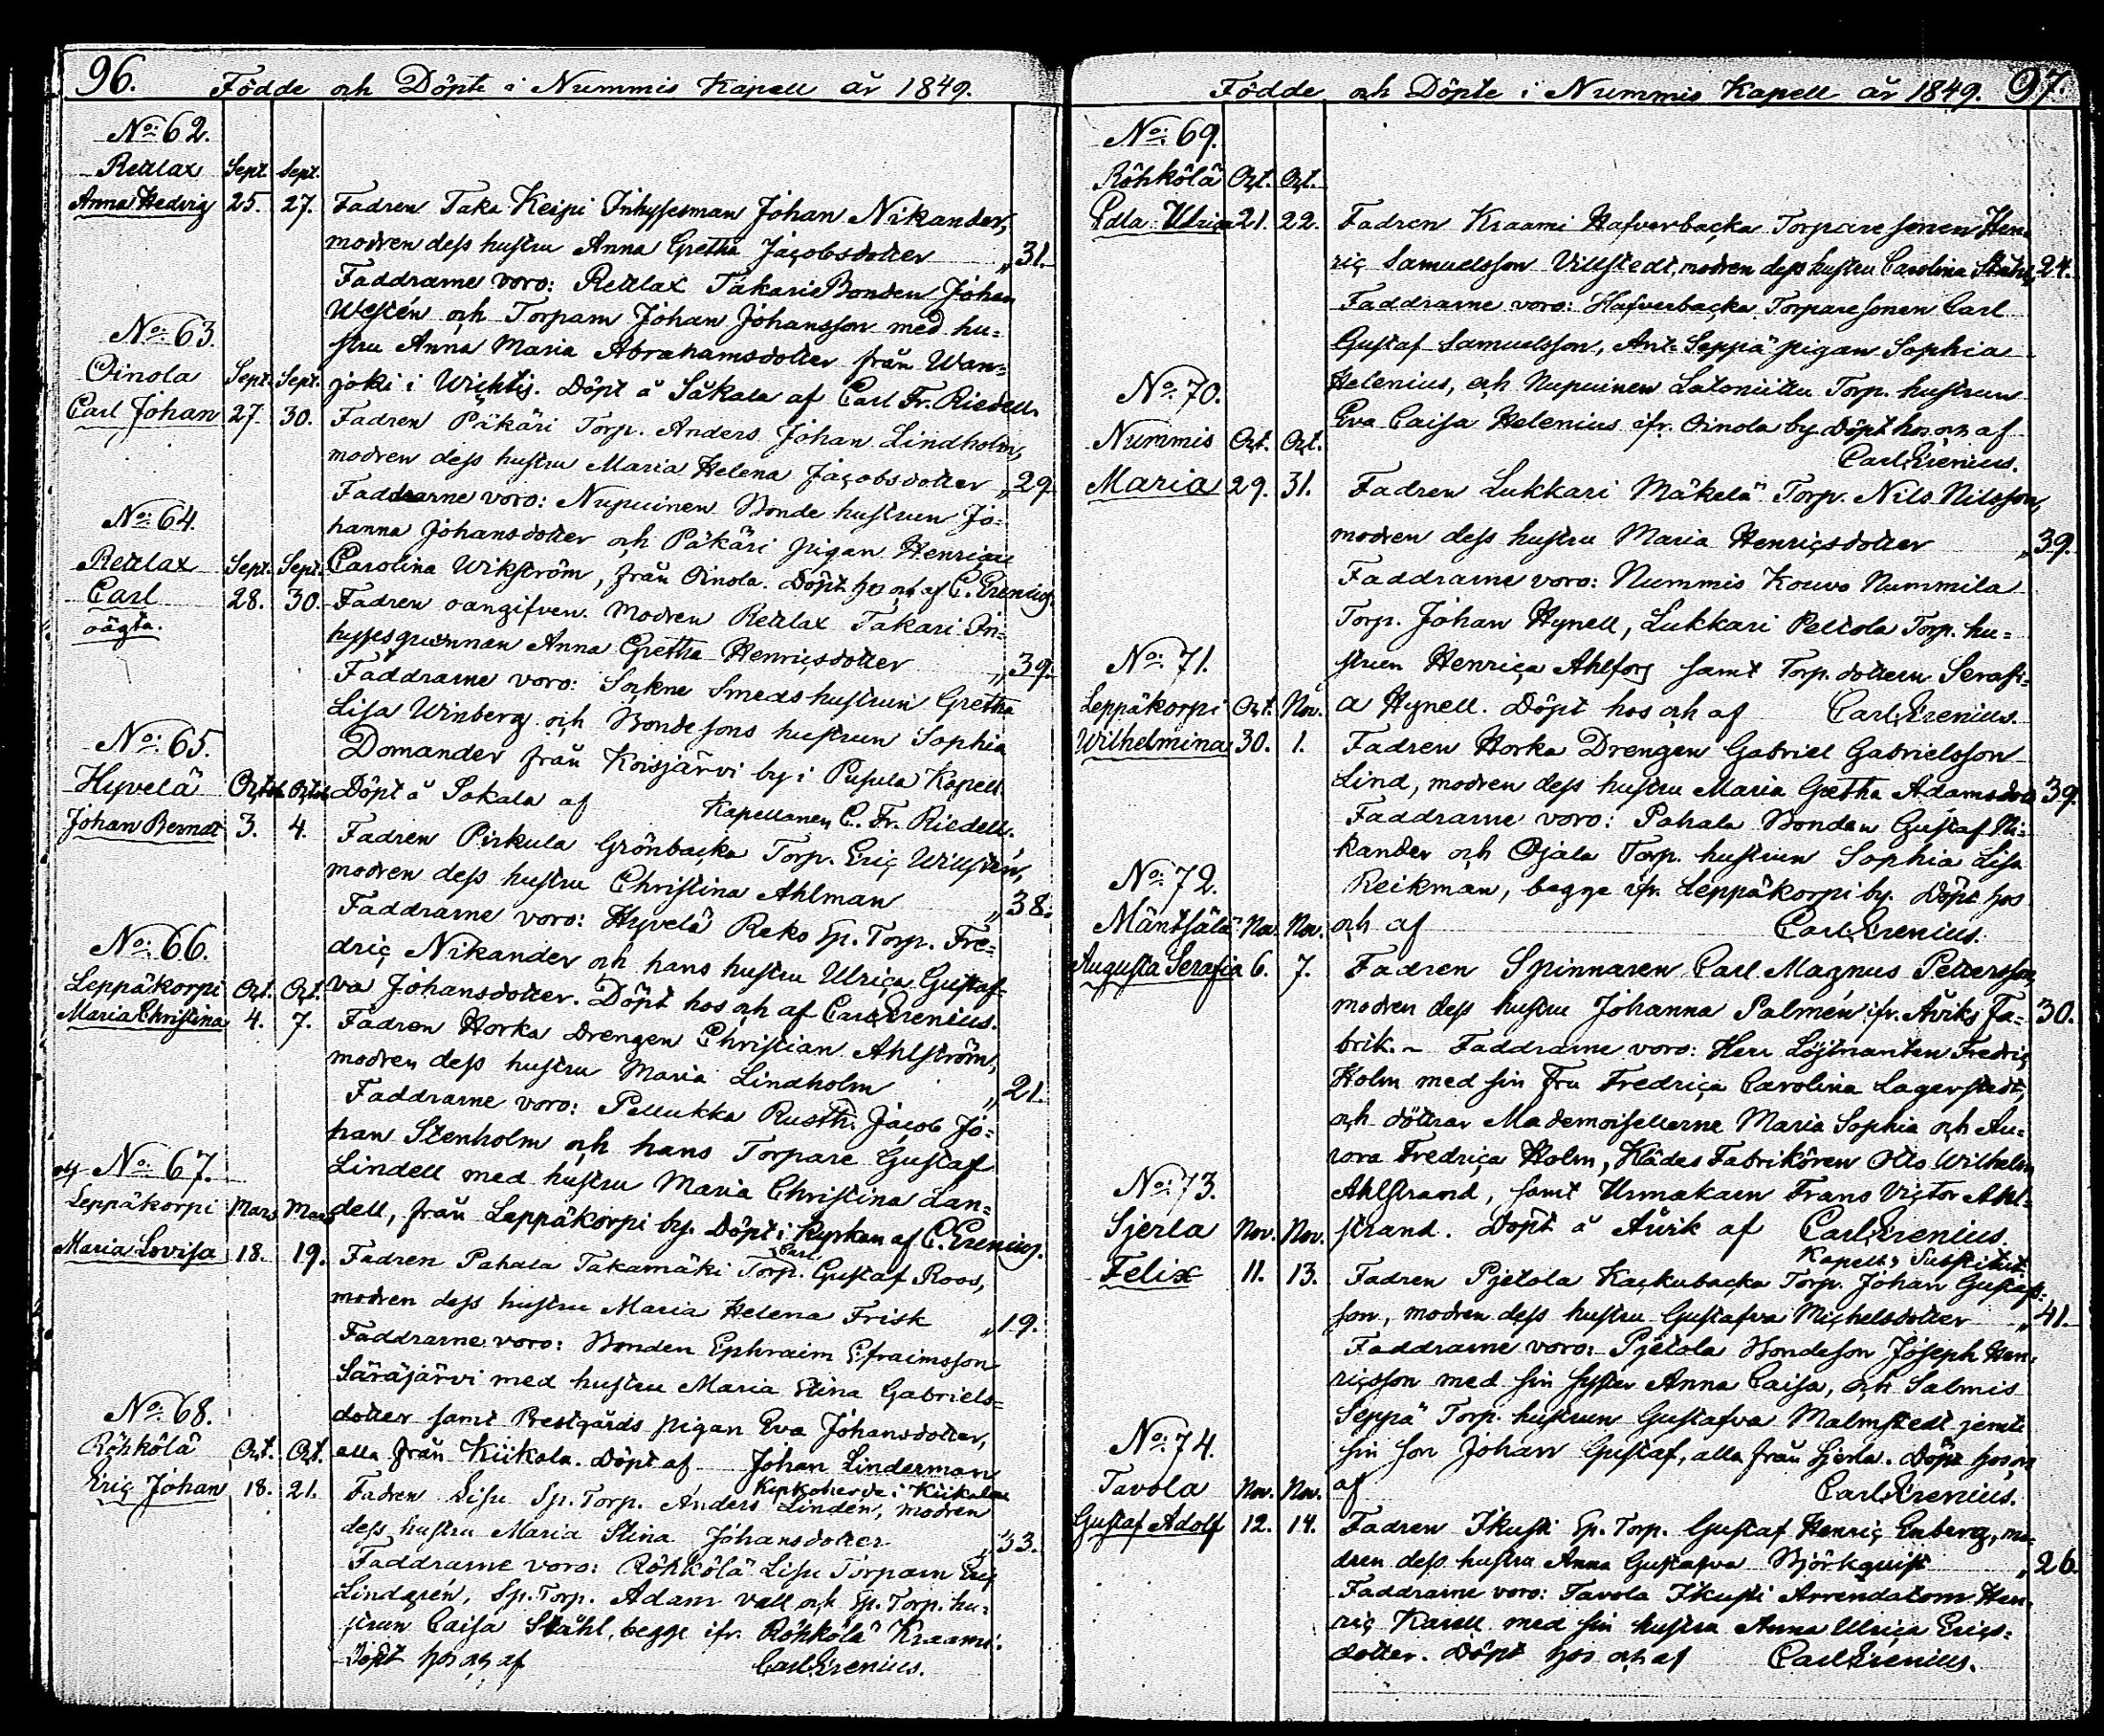 96. Födde och Döpte i Nummis Kapell år 1849.
No: 62.
Retlax Sept. Sept.
Anna Hedvig 25. 27. Fadren Taka Keipi Inhysesman Johan Nikander,
modren dess hustru Anna Gretha Jacobsdotter „31.
Faddrarne voro: Retlax Takari Bonden Johan
Westén och Torparn Johan Johansson med hu=
stru Anna Maria Abrahamsdotter från Wan=
joki i Wichtis. Döpt å Säkala af Carl Fr. Riedell.
No: 63.
Oinola Sept. Sept.
Carl Johan 27. 30. Fadren Päkäri Torp. Anders Johan Lindholm,
modren dess hustru Maria Helena Jacobsdotter „29.
Faddrarne voro: Nupuinen Bonde hustrun Jo=
hanna Johansdotter och Päkäri pigan Henrica
Carolina Wikström, från Oinola. Döpt hos och af C. Erenius.
No: 64.
Retlax Sept. Sept.
Carl 28. 30. Fadren oangifven. Modren Retlax Takari In=
oägta.
hysesqvinnan Anna Gretha Henricsdotter „39.
Faddrarne voro: Sockne Smeds hustrun Gretha
Lisa Winberg och Bondesons hustrun Sophia
Domander från Koisjärvi by i Pusula Kapell.
Döpt å Sakala af Kapellanen C. Fr. Riedell.
No: 65.
Hyvelä Octob. Octob.
Johan Bernat 3. 4. Fadren Pirkula Grönbacka Torp. Eric Willstén,
modren dess hustru Christina Ahlman „38.
Faddrarne voro: Hyvelä Reko Sp. Torp. Fre=
dric Nikander och hans hustru Ulrica Gustaf=
va Johansdotter. Döpt hos och af Carl Erenius.
No: 66.
Leppäkorpi Oct. Oct.
Maria Christina 4. 7. Fadren Horka Drengen Christian Ahlström,
modren dess hustru Maria Lindholm „21.
Faddrarne voro: Pellukka Rusth. Jacob Jo=
han Stenholm och hans Torpare Gustaf
Lindell med hustru Maria Christina Lan=
dell, från Leppäkorpi by. Döpt i Kyrkan af C. Erenius.
No: 67.
Leppäkorpi Mars Mars
Maria Lovisa 18. 19. Fadren Pahala Takamäki Torp. Gustaf Roos,
modren dess hustru Maria Helena Frisk „19.
Faddrarne voro: Bonden Ephraim Efraimsson
Säräjärvi med hustru Maria Stina Gabriels=
dotter samt Prestgårds pigan Eva Johansdotter,
alla från Kiikala. Döpt af Johan Linderman
Kyrkoherde i Kiikala
No: 68.
Röhkölä Oct. Oct.
Eric Johan 18. 21. Fadren Lisu Sp. Torp. Anders Lindén, modren
dess hustru Maria Stina Johansdotter „33.
Faddrarne voro: Röhkölä Lisu Torparn Eric
Lindgrén, Sp. Torp. Adam Vall och Sp. Torp. hu=
strun Caisa Ståhl, begge ifr. Röhkölä Kraami.
Döpt hos och af Carl Erenius.
Födde och Döpte i Nummis Kapell år 1849. 97.
No: 69.
Röhkölä Oct. Oct.
Edla Ulrica 21. 22. Fadren Kraami Hafverbacka Torpare sonen Hen=
ric Samuelsson Villstedt, modren dess hustru Carolina Ståhl, 24.
Faddrarne voro: Hafverbacka Torparesonen Carl
Gustaf Samuelsson, Ant-Seppä pigan Sophia
Helenius, och Nupuinen Latoniittu Torp. hustrun
Eva Caisa Helenius ifr. Oinola by. Döpt hos och af
Carl Erenius.
No: 70.
Nummis Oct. Oct.
Maria 29. 31. Fadren Lukkari Mäkelä Torp. Nils Nilsson,
modren dess hustru Maria Henricsdotter „39.
Faddrarne voro: Nummis Kouvo Nummila
Torp. Johan Hynell, Lukkari Peltola Torp. hu=
strun Henrica Ahlfors samt Torp. dottern Serafi=
a Hynell. Döpt hos och af Carl Erenius.
No: 71.
Leppäkorpi Oct. Nov.
Wilhelmina 30. 1. Fadren Horka Drengen Gabriel Gabrielsson
Lind, modren dess hustru Maria Gretha Adamsdott 39.
Faddrarne voro: Pahala Bonden Gustaf Ni=
kander och Ojala Torp. hustrun Sophia Lisa
Reikman, begge ifr. Leppäkorpi by. Döpt hos
och af Carl Erenius.
No: 72.
Mäntsälä Nov. Nov.
Augusta Serafia 6. 7. Fadren Spinnaren Carl Magnus Pettersson,
modren dess hustru Johanna Palmén ifr. Åviks Fa= 30.
brik. - Faddrarne voro: Herr Löjtnanten Fredric
Holm med sin Fru Fredrica Carolina Lagerstedt,
och döttrar Mademoisellerne Maria Sophia och Au=
rora Fredrica Holm, Klädes Fabrikören Otto Wilhelm
Ahlstrand, samt Urmakarn Frans Victor Ahl=
strand. Döpt å Åvik af Carl Erenius.
Kapells Substitut
No: 73.
Sjerla Nov. Nov.
Felix 11. 13. Fadren Pjetola Kackubacka Torp. Johan Gustafs=
son, modren dess hustru Gustafva Michelsdotter „41.
Faddrarne voro: Pjetola Bondeson Joseph Hen=
ricsson med sin syster Anna Caisa, och Salmis
Seppä Torp. hustrun Gustafva Malmstedt jemte
sin son Johan Gustaf, alla från Sjerla. Döpt hos och
af Carl Erenius.
No: 74.
Tavola Nov. Nov.
Gustaf Adolf 12. 14. Fadren Ikusti Sp. Torp. Gustaf Henric Enberg, mo=
dren dess hustru Anna Gustafva Björkqvist „26.
Faddrarne voro: Tavola Ikusti Arrendatorn Hen=
ric Karell med sin hustru Anna Ulrica Erics=
dotter. Döpt hos och af Carl Erenius.